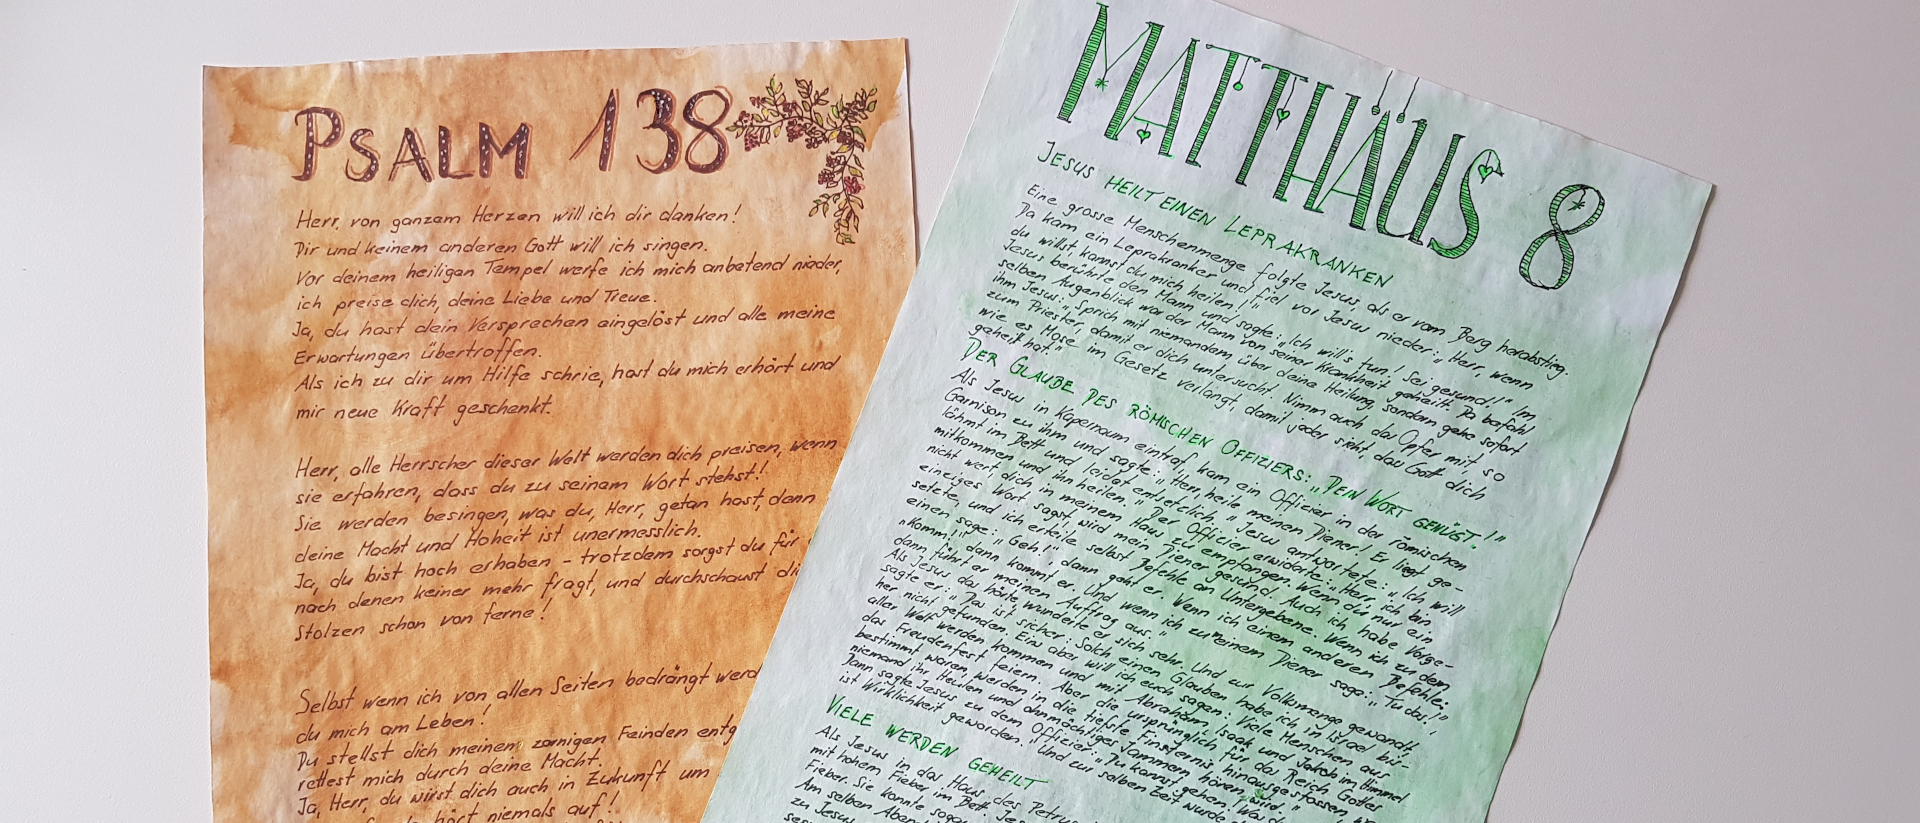 PSALM 138
Herr, von ganzem Herzen will ich dir danken!
Dir und keinem anderen Gott will ich singen.
Vor deinem heiligen Tempel werfe ich mich anbetend nieder,
ich preise dich, deine Liebe und Treue.
Ja, du hast dein Versprechen eingelöst und alle meine
Erwartungen übertroffen.
Als ich zu dir um Hilfe schrie, hast du mich erhört und
mir neue Kraft geschenkt.
Herr, alle Herrscher dieser Welt werden dich preisen, wenn
sie erfahren, dass du zu seinem Wort stehst!
Sie werden besingen, was du, Herr, getan hast, denn
deine Macht und Hoheit ist unermesslich.
Ja, du bist hoch erhaben - trotzdem sorgst du für
nach denen keiner mehr fragt, und durchschaust di
Stolzen schon von ferne!
Selbst wenn ich von allen Seiten bedrängt werd
du mich am Leben!
Du stellst dich meinem zornigen Feinden entg
rettest mich durch deine Macht.
Ja, Herr, du wirst dich auch in Zukunft um
hört niemals auf!
MATTHÄUS 8
JESUS HEILT EINEN LEPRAKRANKEN
Eine grosse Menschenmenge folgte Jesus, als er vom Berg herabstieg.
Da kam ein Leprakranker und fiel vor Jesus nieder: „Herr, wenn
du willst, kannst du mich heilen!"
Jesus berührte den Mann und sagte: „Ich will's tun! Sei gesund!" Im
selben Augenblick war der Mann von seiner Krankheit geheilt. Da befahl
ihm Jesus: „Sprich mit niemandem über deine Heilung, sondern gehe sofort
zum Priester, damit er dich untersucht. Nimm auch das Opfer mit so
wie es Mose im Gesetz verlangt, damit jeder sieht, das Gott dich
geheilt hat."
DER GLAUBE DES RÖMISCHEN OFFIZIERS: „DEIN WORT GENÜGT!"
Als Jesus in Kapernaum eintraf, kam ein Officier in der römischen
Garnison zu ihm und sagte: „Herr, heile meinen Diener! Er liegt ge-
lähmt im Bett und leidet entsetzlich." Jesus antwortete: „Ich will
mitkommen und ihn heilen." Der Officier erwiderte: „Herr, ich bin
nicht wert, dich in meinem Haus zu empfangen. Wenn du nur ein
einziges Wort sagst, wird mein Diener gesund. Auch ich habe Vorge-
setzte, und ich erteile selbst Befehle an Untergebene. Wenn ich zu dem
einen sage: „Geh!", dann geht er. Wenn ich einem anderen Befehle:
„Komm!", dann kommt er. Und wenn ich zu meinem Diener sage: „Tu das!"
dann führt er meinen Auftrag aus."
Als Jesus das hörte, wunderte er sich sehr. Und zur Volksmenge gewandt
sagte er: „Das ist sicher: Solch einen Glauben habe ich in Israel bis-
her nicht gefunden. Eins aber will ich euch sagen: Viele Menschen aus
aller Welt werden kommen und mit Abraham, Isaak und Jakob im Himmel
das Freudenfest feiern. Aber die ursprünglich für das Reich Gottes
bestimmt waren, werden in die tiefste Finsternis hinausgestossen, wo
niemand ihr Heulen und ohnmächtiges Jammern hören wird."
Dann sagte Jesus zu dem Officier: „Du kannst gehen! Was d
ist Wirklichkeit geworden." Und zur selben Zeit wurde
VIELE WERDEN GEHEILT
Als Jesus in das Haus des Petrus
mit hohem Fieber im Bett. Jes
Fieber. Sie konnte sogar
Am selben Abend
zu Jesus